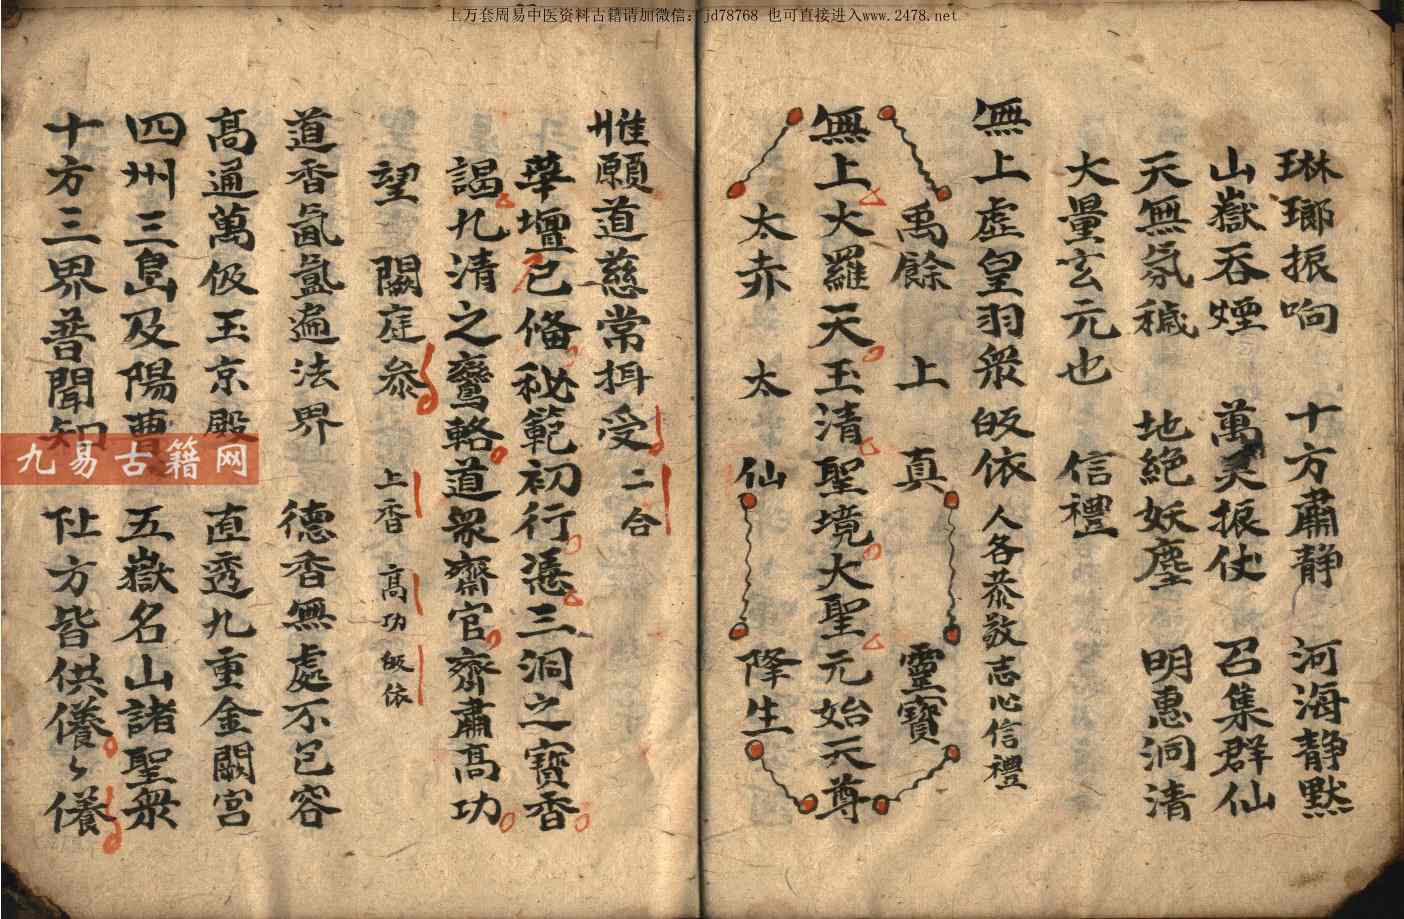 上万套周易中医资料古籍请加微信：jd78768 也可直接进入www.2478.net
琳瑯振响 十方肅静 河海静默
山嶽吞煙 萬灵振伏 召集群仙
天無氛穢 地絶妖塵 明惠洞清
大量玄元也 信禮
無上虛皇羽衆 皈依 人各恭敬志心信禮
禹餘 上真 靈寳
無上大羅天玉清聖境大聖元始天尊
太赤 太仙 降生
惟願道慈常
受 二合
華壇已俻秘範初行憑三洞之寶香
謁九清之鸞輅道衆齋官齊肅高功
望闕庭叅 上香 高功皈依
道香氤氲遍法界 德香無處不包容
高通萬仭玉京殿 直透九重金闕宮
四州三島及陽曹 五嶽名山諸聖衆
十方三界普聞知
方皆供養
養
九易古籍网